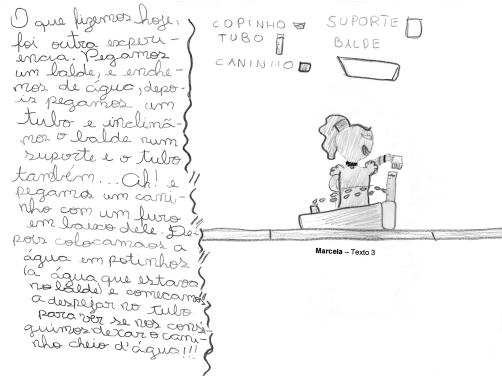 O que fizemos hoje,
foi outra experi-
encia. Pegamos
um balde, e enche-
mos de água, depo-
is pegamos um
tubo e inclina-
mos o balde num
suporte e o tubo
também... Ah! e
pegamos um cani-
nho com um furo
em baixo dele. De-
pois colocamaos a
água em potinhos
(a água que estava
no balde) e comecamos
a despejar no tubo
para ver se nos consi-
guimos dexar o cani-
nho cheio d'água!!!
COPINHO
TUBO
CANINHO
SUPORTE
BALDE
Marcela – Texto 3